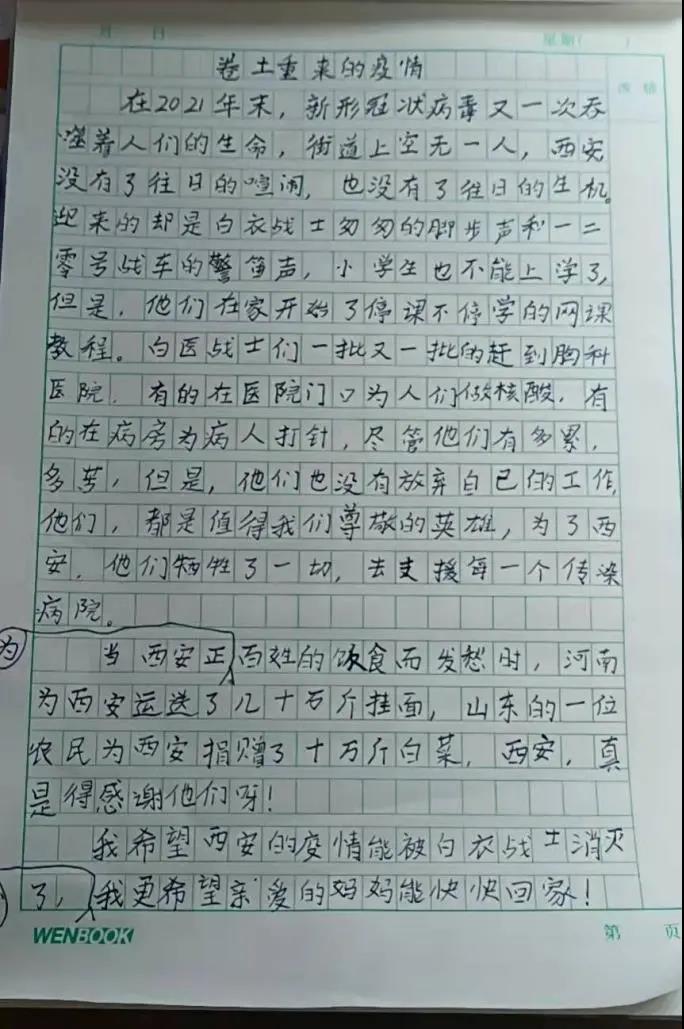 月 日 星期( )
卷土重来的疫情
在2021年末，新形冠状病毒又一次吞
噬着人们的生命，街道上空无一人，西安
没有了往日的喧闹，也没有了往日的生机。
迎来的却是白衣战士匆匆的脚步声和一二
零号战车的警笛声，小学生也不能上学了，
但是，他们在家开始了停课不停学的网课
教程。白医战士们一批又一批的赶到胸科
医院，有的在医院门口为人们做核酸，有
的在病房为病人打针，尽管他们有多累，
多苦，但是，他们也没有放弃自己的工作，
他们，都是值得我们尊敬的英雄，为了西
安，他们牺牲了一切，去支援每一个传染
病院。
为
当西安正百姓的饮食而发愁时，河南
为西安运送了几十万斤挂面，山东的一位
农民为西安捐赠了十万斤白菜，西安，真
是得感谢他们呀！
我希望西安的疫情能被白衣战士消灭
了，我更希望亲爱的妈妈能快快回家！
WENBOOK 第 页